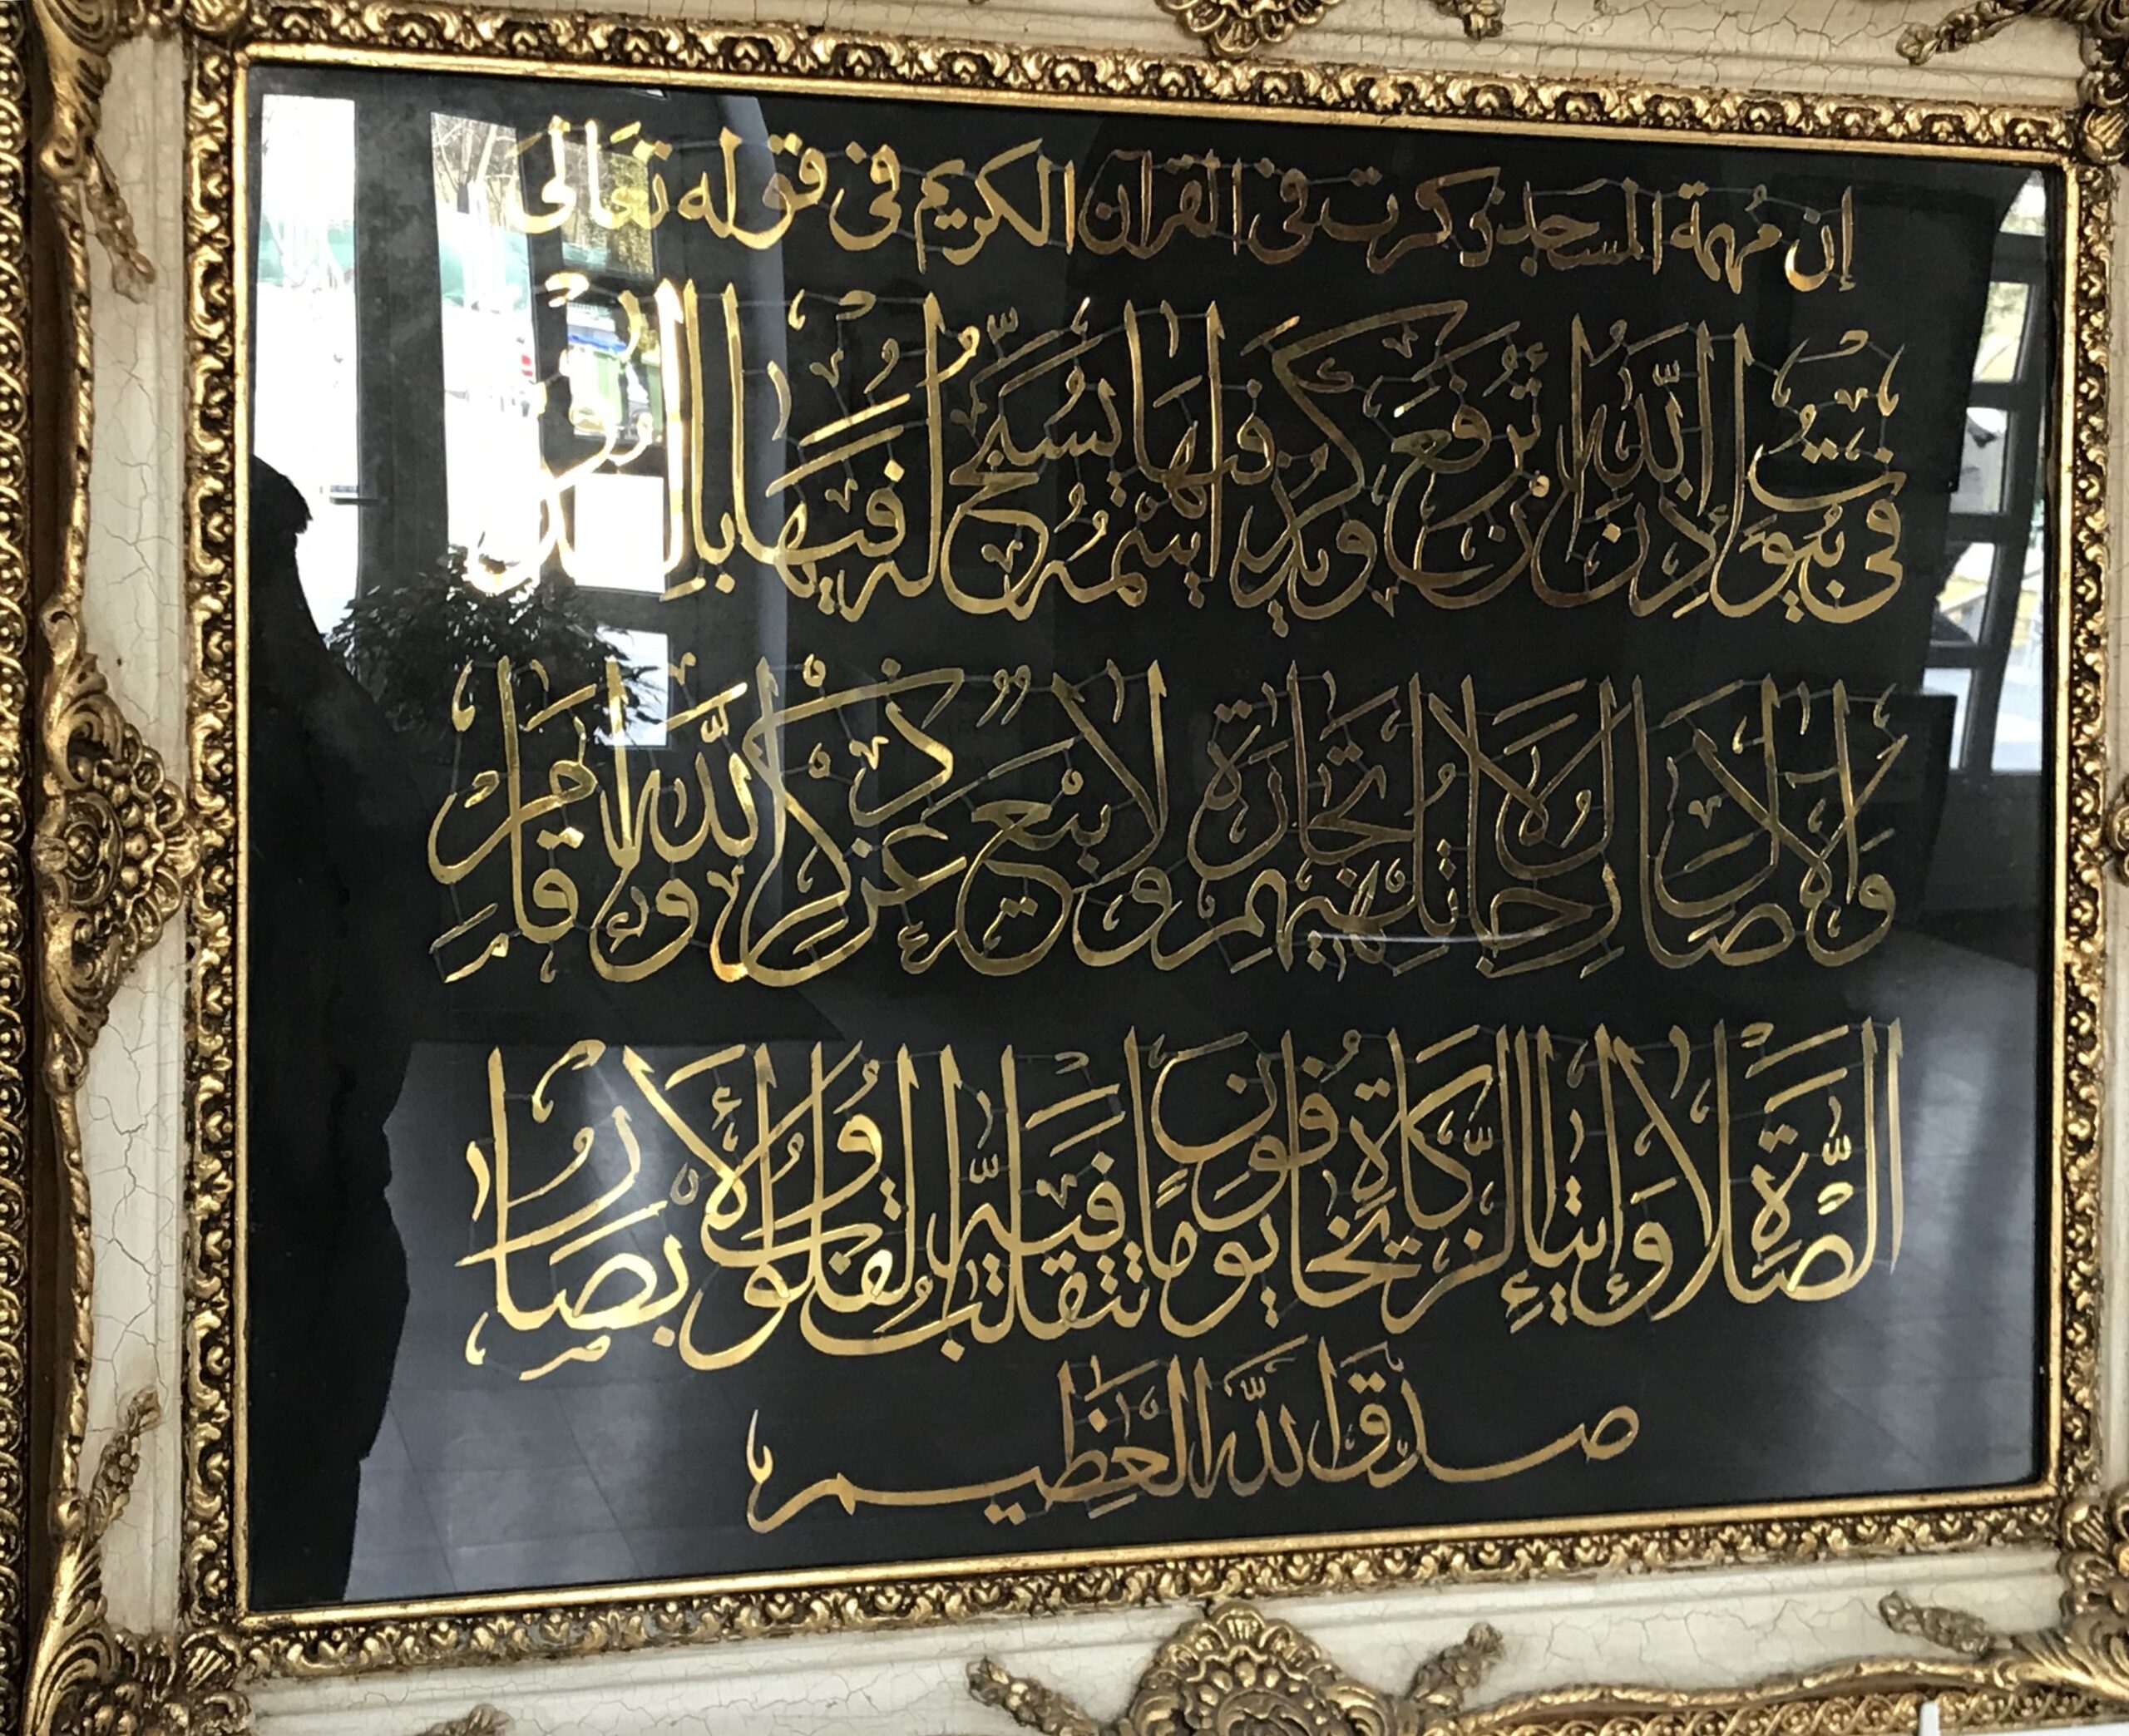 إن مهمة المسجد ذكرت في القرآن الكريم في قوله تعالى
في بُيُوتٍ أَذِنَ اللَّهُ أَن تُرْفَعَ وَيُذْكَرَ فِيهَا اسْمُهُ يُسَبِّحُ لَهُ فِيهَا بِالْغُدُوِّ
وَالْآصَالِ رِجَالٌ لَا تُلْهِيهِمْ تِجَارَةٌ وَلَا بَيْعٌ عَن ذِكْرِ اللَّهِ وَإِقَامِ
الصَّلَاةِ وَإِيتَاءِ الزَّكَاةِ يَخَافُونَ يَوْمًا تَتَقَلَّبُ فِيهِ الْقُلُوبُ وَالْأَبْصَارُ
صدق الله العظيم